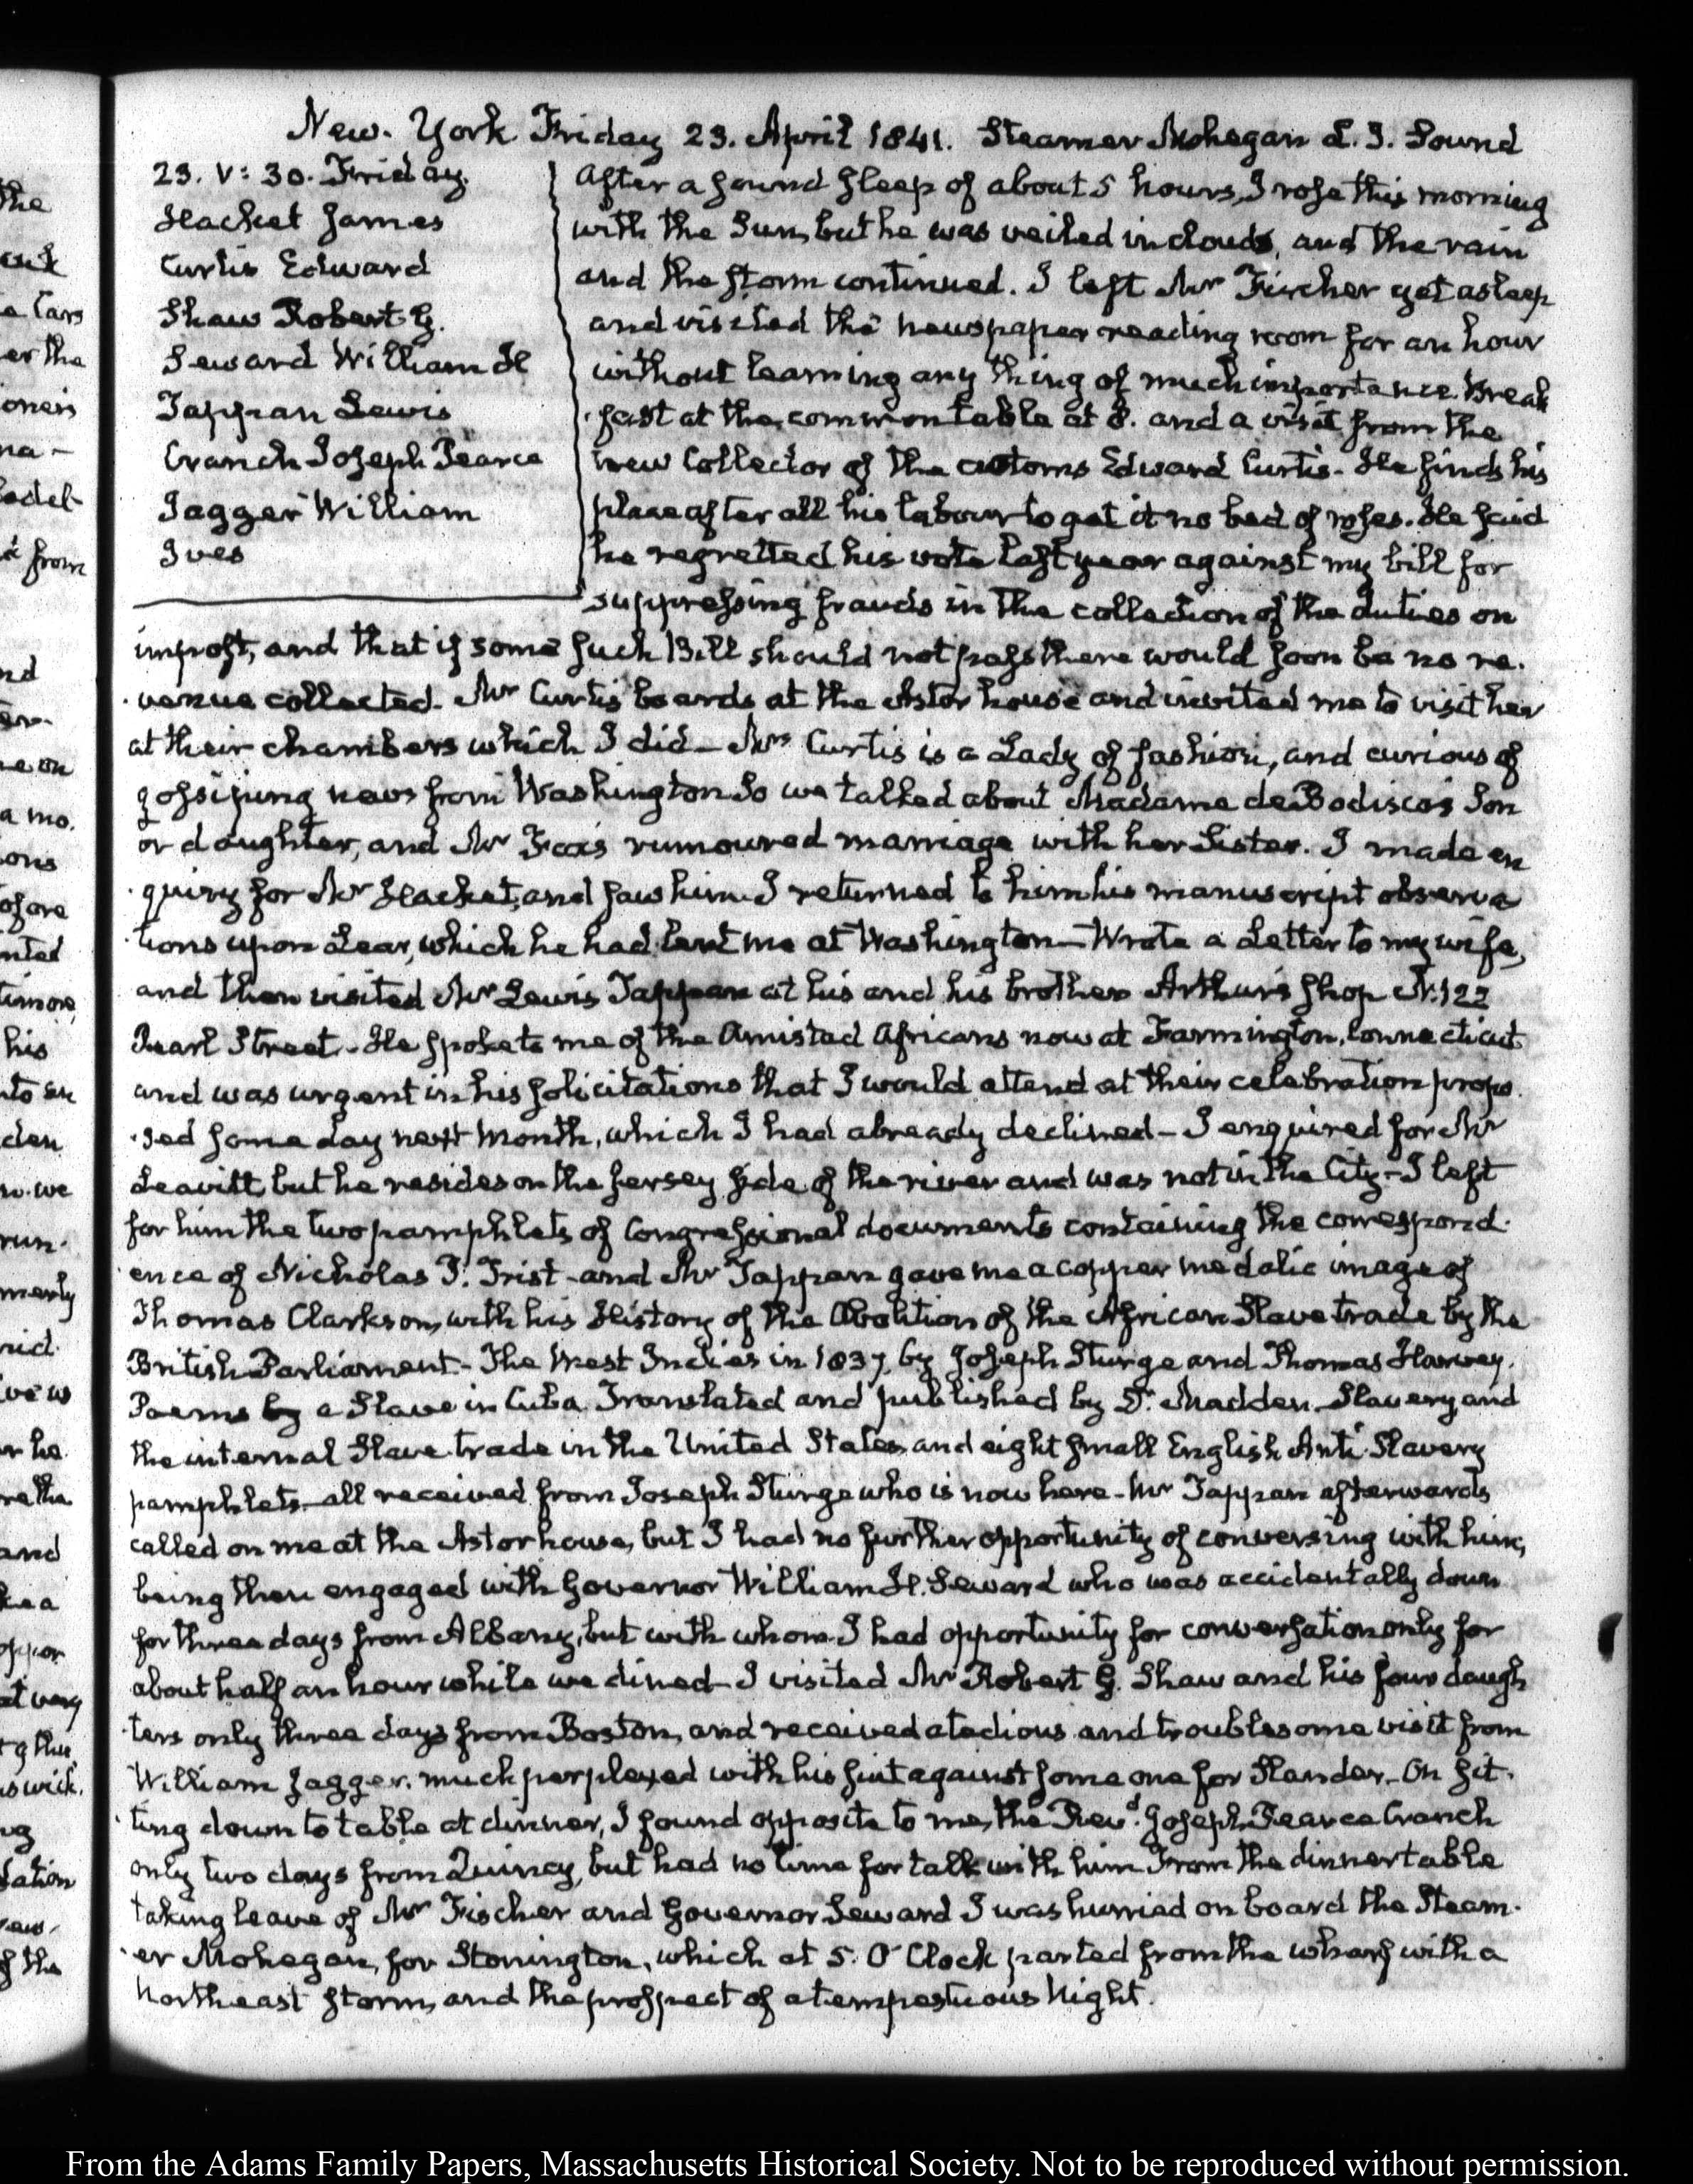 New-York Friday 23. April 1841. Steamer Mohegan L. I. Sound
23. V: 30. Friday.
Hacket James
Curtis Edward
Shaw Robert G.
Seward William H
Tappan Lewis
Cranch Joseph Pearce
Jagger William
Ives
After a sound sleep of about 5 hours, I rose this morning
with the Sun, but he was veiled in clouds, and the rain
and the storm continued. I left Mr Fischer yet asleep
and visited the newspaper reading room for an hour
without learning any thing of much importance. Break
fast at the common table at 8. and a visit from the
new Collector of the customs Edward Curtis. He finds his
place after all his labour to get it no bed of roses. He said
he regretted his vote last year against my bill for
suppressing frauds in the collection of the duties on
impost, and that if some such Bill should not pass there would soon be no re.
venue collected. Mr Curtis boards at the Astor house and invited me to visit her
at their chambers which I did — Mrs Curtis is a Lady of fashion, and curious of
gossiping news from Washington So we talked about Madame de Bodisco's Son
or daughter, and Mr Fox's rumoured marriage with her Sister. I made en
quiry for Mr Hacket, and saw him. I returned to him his manuscript observa
tions upon Lear, which he had lent me at Washington — Wrote a Letter to my wife,
and then visited Mr Lewis Tappan at his and his brother Arthur's shop N. 122
Pearl Street. He spoke to me of the Amistad Africans now at Farmington, Connecticut
and was urgent in his solicitations that I would attend at their celebration propo.
sed some day next Month, which I had already declined — I enquired for Mr
Leavitt, but he resides on the Jersey side of the river and was not in the City — I left
for him the two pamphlets of Congressional documents containing the correspond.
ence of Nicholas P. Trist — and Mr Tappan gave me a copper medalic image of
Thomas Clarkson, with his History of the Abolition of the African Slave trade by the
British Parliament — The West Indies in 1837, by Joseph Sturge and Thomas Harvey.
Poems by a Slave in Cuba Translated and published by Dr. Madden. Slavery, and
the internal Slave trade in the United States, and eight small English Anti Slavery
pamphlets — all received from Joseph Sturge who is now here — Mr Tappan afterwards
called on me at the Astor house, but I had no further opportunity of conversing with him,
being then engaged with Governor William H. Seward who was accidentally down
for three days from Albany, but with whom I had opportunity for conversation only for
about half an hour while we dined — I visited Mr Robert G. Shaw and his four daugh
ters only three days from Boston, and received a tedious and troublesome visit from
William Jagger, much perplexed with his suit against some one for Slander — On sit.
ting down to table at dinner, I found opposite to me, the Revd. Joseph Pearce Cranch
only two days from Quincy, but had no time for talk with him From the dinner table
taking leave of Mr Fischer and Governor Seward I was hurried on board the Steam.
er Mohegan, for Stonington, which at 5. O'Clock parted from the wharf with a
Northeast storm, and the prospect of a tempestuous Night.
From the Adams Family Papers, Massachusetts Historical Society. Not to be reproduced without permission.